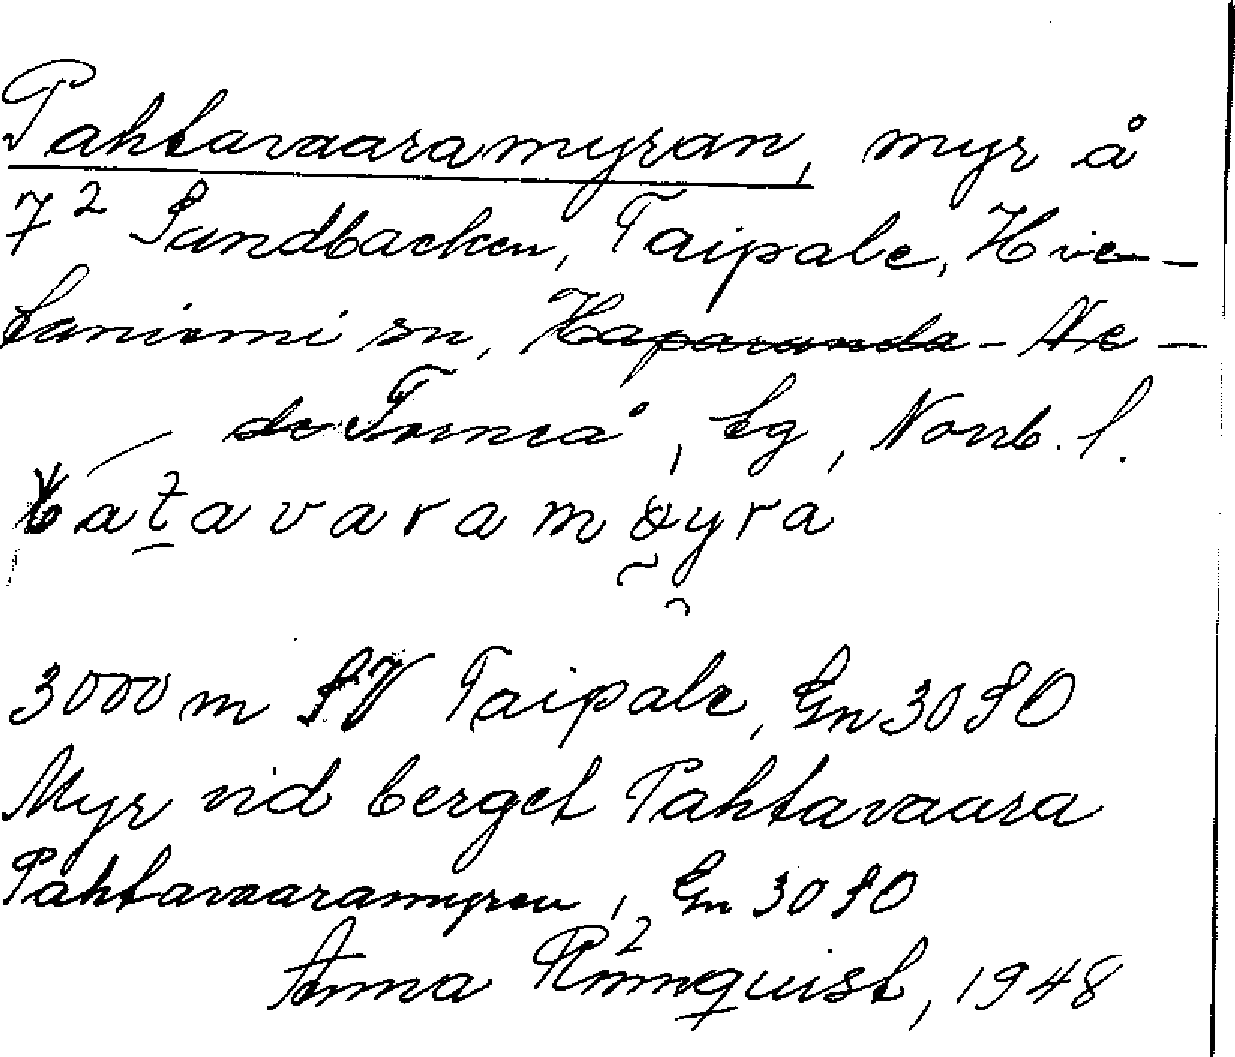 Pahtavaaramyran, myr å
7² Sundbacken, Taipale, Hie-
taniemi sn, Haparanda - Ne-
derTorneå, tg, Norrb. l.
3000 m SV Taipale, Gn 30 SO
Myr vid berget Pahtavaara
Pahtavaaramyren, Gn 30 SO
Anna Rönnquist, 1948